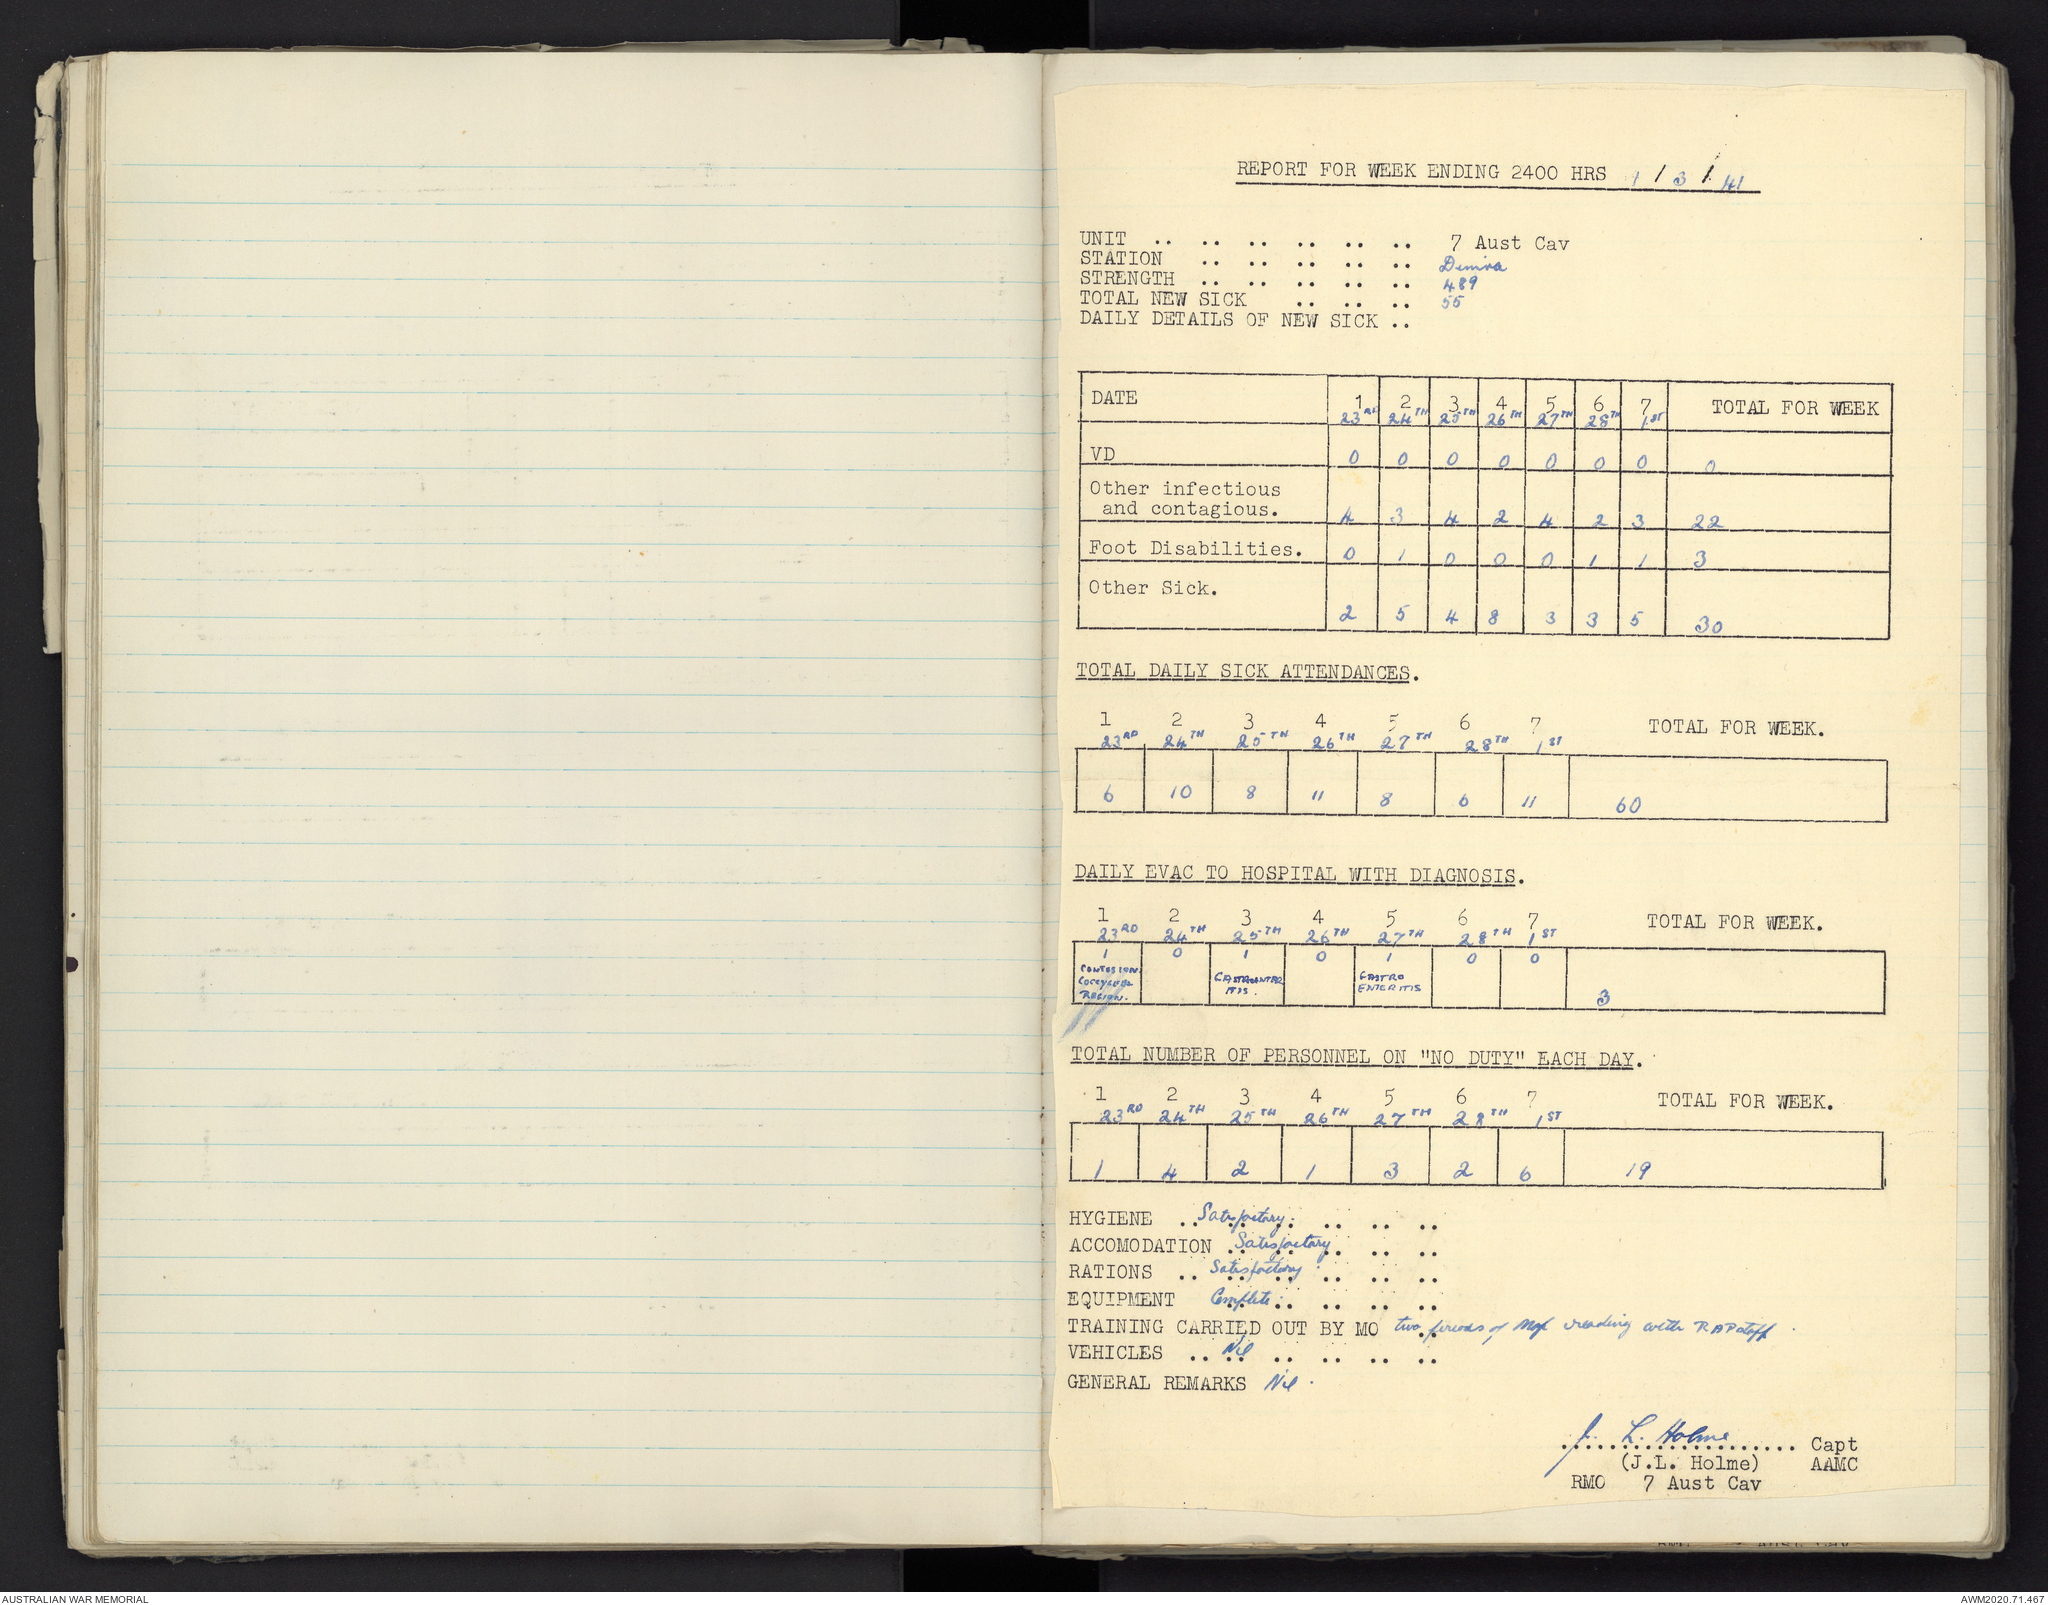 REPORT FOR WEEK ENDING 2400 HRS 1 / 3 / 41
UNIT .. .. .. .. .. .. 7 Aust Cav
STATION .. .. .. .. ..
STRENGTH .. .. .. .. .. 489
TOTAL NEW SICK .. .. .. 55
DAILY DETAILS OF NEW SICK ..
DATE 1 2 3 4 5 6 7 TOTAL FOR WEEK
23RD 24TH 25TH 26TH 27TH 28TH 1ST
VD 0 0 0 0 0 0 0 0
Other infectious
and contagious. 4 3 4 2 4 2 3 22
Foot Disabilities. 0 1 0 0 0 1 1 3
Other Sick.
2 5 4 8 3 3 5 30
TOTAL DAILY SICK ATTENDANCES.
1 2 3 4 5 6 7 TOTAL FOR WEEK.
23RD 24TH 25TH 26TH 27TH 28TH 1ST
6 10 8 11 8 6 11 60
DAILY EVAC TO HOSPITAL WITH DIAGNOSIS.
1 2 3 4 5 6 7 TOTAL FOR WEEK.
23RD 24TH 25TH 26TH 27TH 28TH 1ST
1 0 1 0 1 0 0
CONTUSION GASTROENTER GASTRO
COCCYGEAL ITIS. ENTERITIS
REGION. 3
TOTAL NUMBER OF PERSONNEL ON "NO DUTY" EACH DAY.
1 2 3 4 5 6 7 TOTAL FOR WEEK.
23RD 24TH 25TH 26TH 27TH 28TH 1ST
1 4 2 1 3 2 6 19
HYGIENE .. Satisfactory. .. .. ..
ACCOMODATION .. Satisfactory .. .. ..
RATIONS .. Satisfactory .. .. ..
EQUIPMENT Complete .. .. .. ..
TRAINING CARRIED OUT BY MO two periods of Map reading with RAP staff
VEHICLES .. Nil .. .. .. ..
GENERAL REMARKS Nil.
J. L. Holme Capt
(J.L. Holme) AAMC
RMO 7 Aust Cav
AUSTRALIAN WAR MEMORIAL
AWM2020.71.467